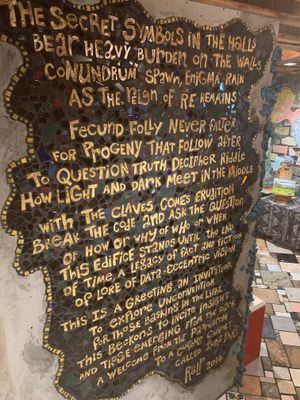 The Secret Symbols in the Halls
Bear Heavy Burden on the Walls
Conundrum Spawn, Enigma Rain
As the reign of Re Remains
Fecund Folly Never Falter
for Progeny that follow after
To Question Truth, Decipher Riddle
How Light and Dark Meet in the Middle
With the Claves comes Erudition
Break the Code and Ask the Question
of How or Why or Who or When
This Edifice Stands until the End
of Time a Legacy of Fact and Fiction
of Lore of Data-Eccentric Vision
This is a Greeting, an Invitation
to Explore Unconventional
For Those Basking in the Light
This Beckons to Incite Insight
And Those Emerging from the Dark
A Welcome to a Curious
called
Rolf 2014